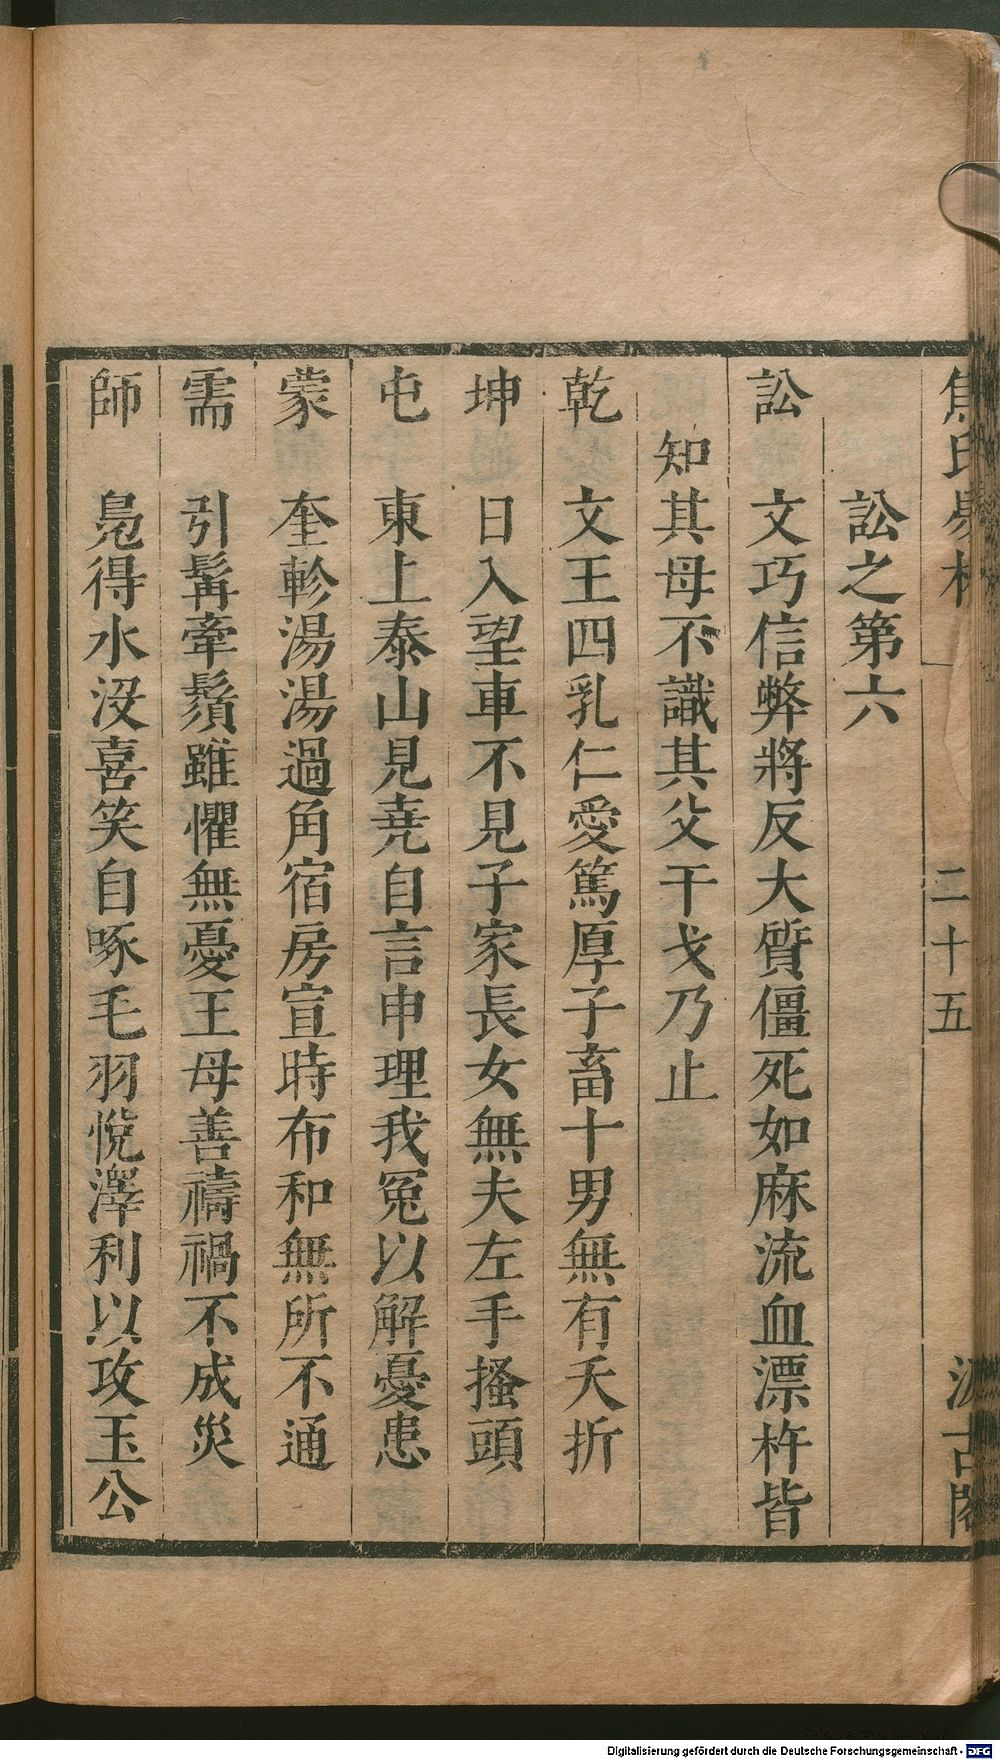 焦氏易林
二十五
汲古閣
訟之第六
訟 文巧信弊將反大質僵死如麻流血漂杵皆
知其母不識其父干戈乃止
乾 文王四乳仁愛篤厚子畜十男無有夭折
坤 日入望車不見子家長女無夫左手搔頭
屯 東上泰山見堯自言申理我冤以解憂患
蒙 奎軫湯湯過角宿房宣時布和無所不通
需 引髯牽鬚雖懼無憂王母善禱禍不成災
師 鳧得水沒喜笑自啄毛羽悅澤利以攻玉公
Digitalisierung gefördert durch die Deutsche Forschungsgemeinschaft - DFG